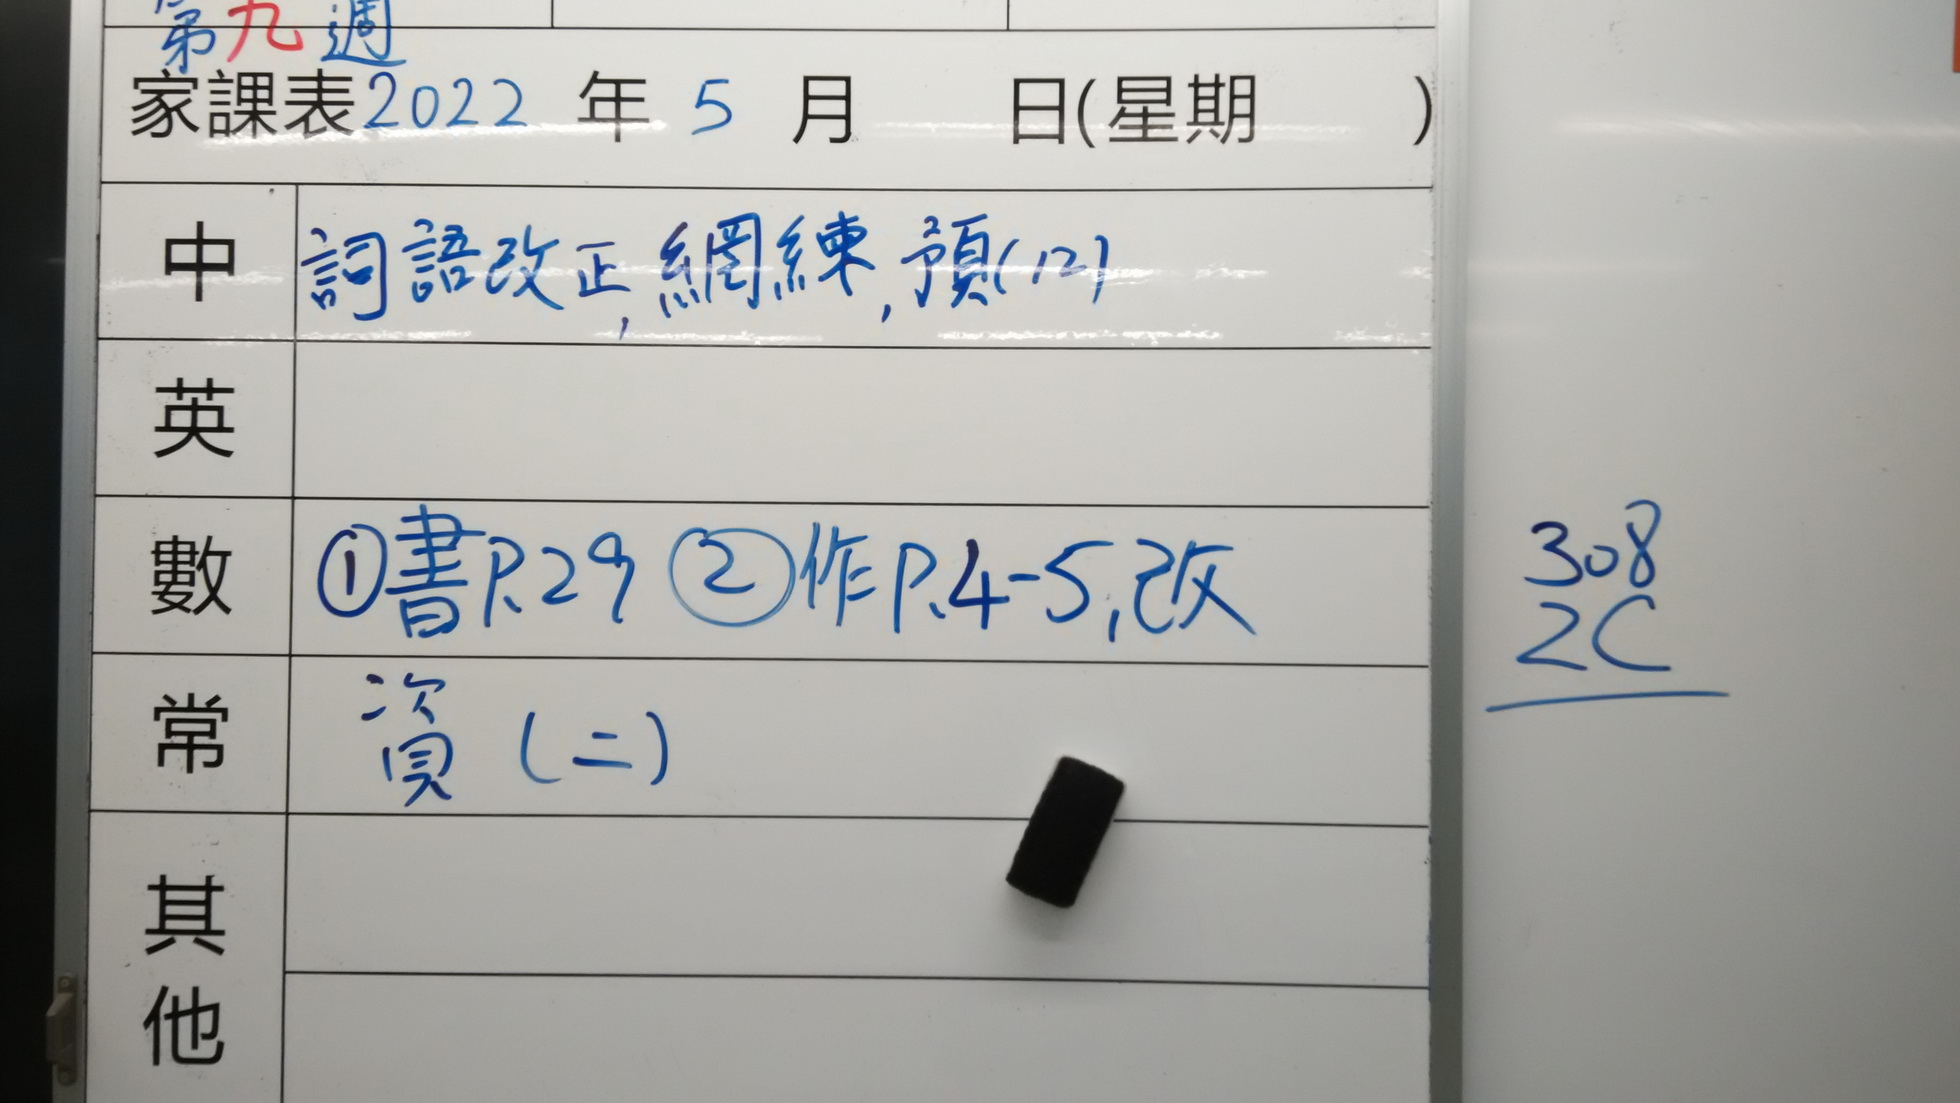 第九週
家課表2022 年 5 月 日(星期 )
中 詞語改正,網練,預(12)
英
數 ①書P.29 ②作P.4-5,改
常 資(二)
其他
308
2C